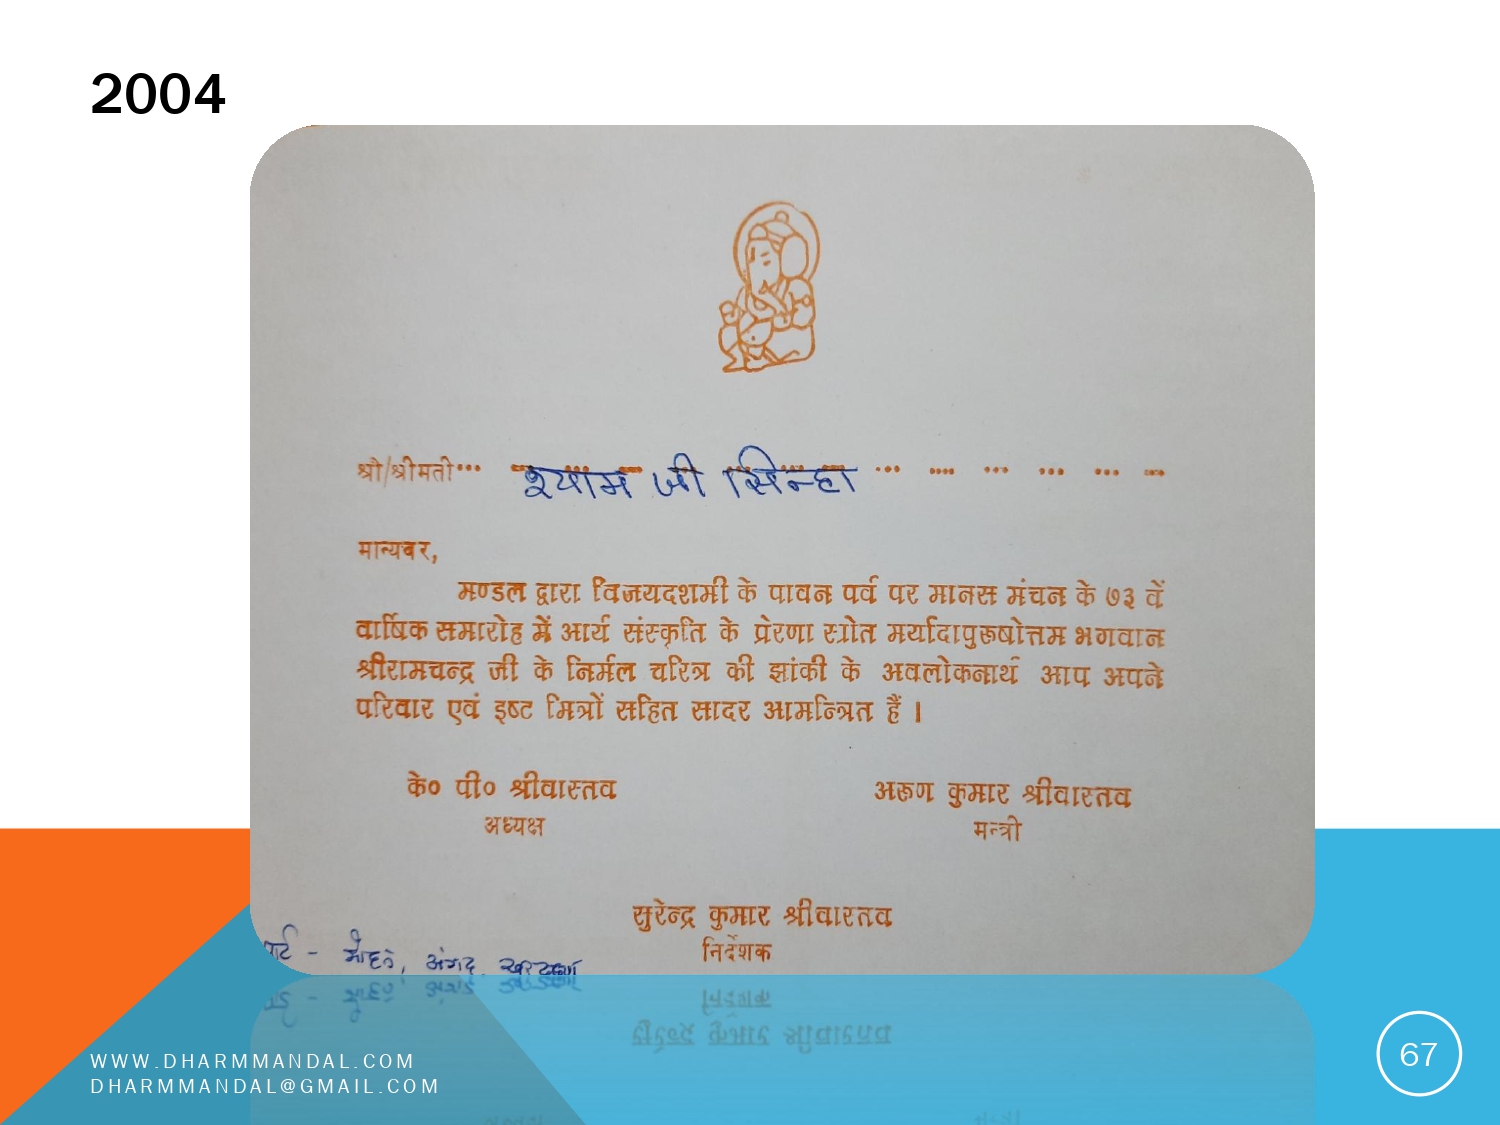 2004
श्री/श्रीमती... श्याम जी सिन्हा ... .... ... ... ... ...
मान्यवर,
मण्डल द्वारा विजयदशमी के पावन पर्व पर मानस मंचन के ७३ वें
वार्षिक समारोह में आर्य संस्कृति के प्रेरणा स्रोत मर्यादापुरूषोत्तम भगवान
श्रीरामचन्द्र जी के निर्मल चरित्र की झांकी के अवलोकनार्थ आप अपने
परिवार एवं इष्ट मित्रों सहित सादर आमन्त्रित हैं ।
के० पी० श्रीवास्तव अरूण कुमार श्रीवास्तव
अध्यक्ष मन्त्री
सुरेन्द्र कुमार श्रीवास्तव
निर्देशक
अंगद,
WWW.DHARMMANDAL.COM
DHARMMANDAL@GMAIL.COM
67